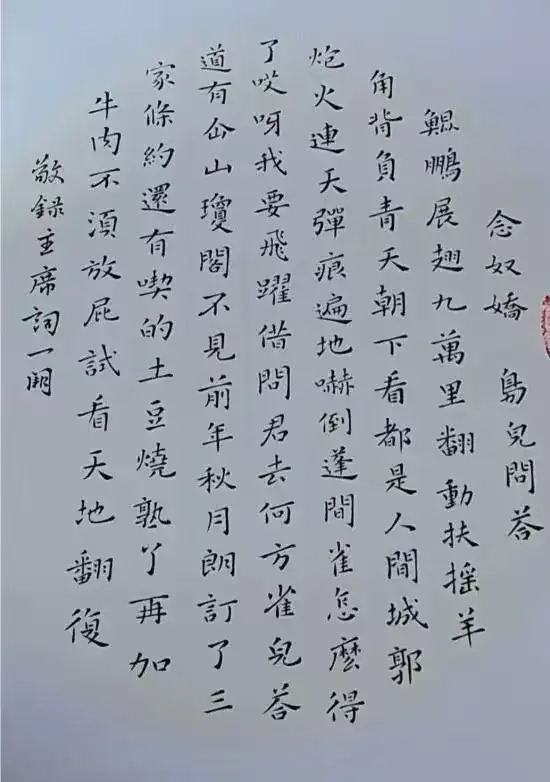 念奴嬌 鳥兒問答
鯤鵬展翅九萬里翻動扶摇羊
角背負青天朝下看都是人間城郭
炮火連天彈痕遍地嚇倒蓬間雀怎麼得
了哎呀我要飛躍借問君去何方雀兒答
道有仚山瓊閣不見前年秋月朗訂了三
家條約還有喫的土豆燒熟了再加
牛肉不須放屁試看天地翻復
敬録主席詞一闋